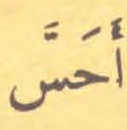 أَحَسَّ